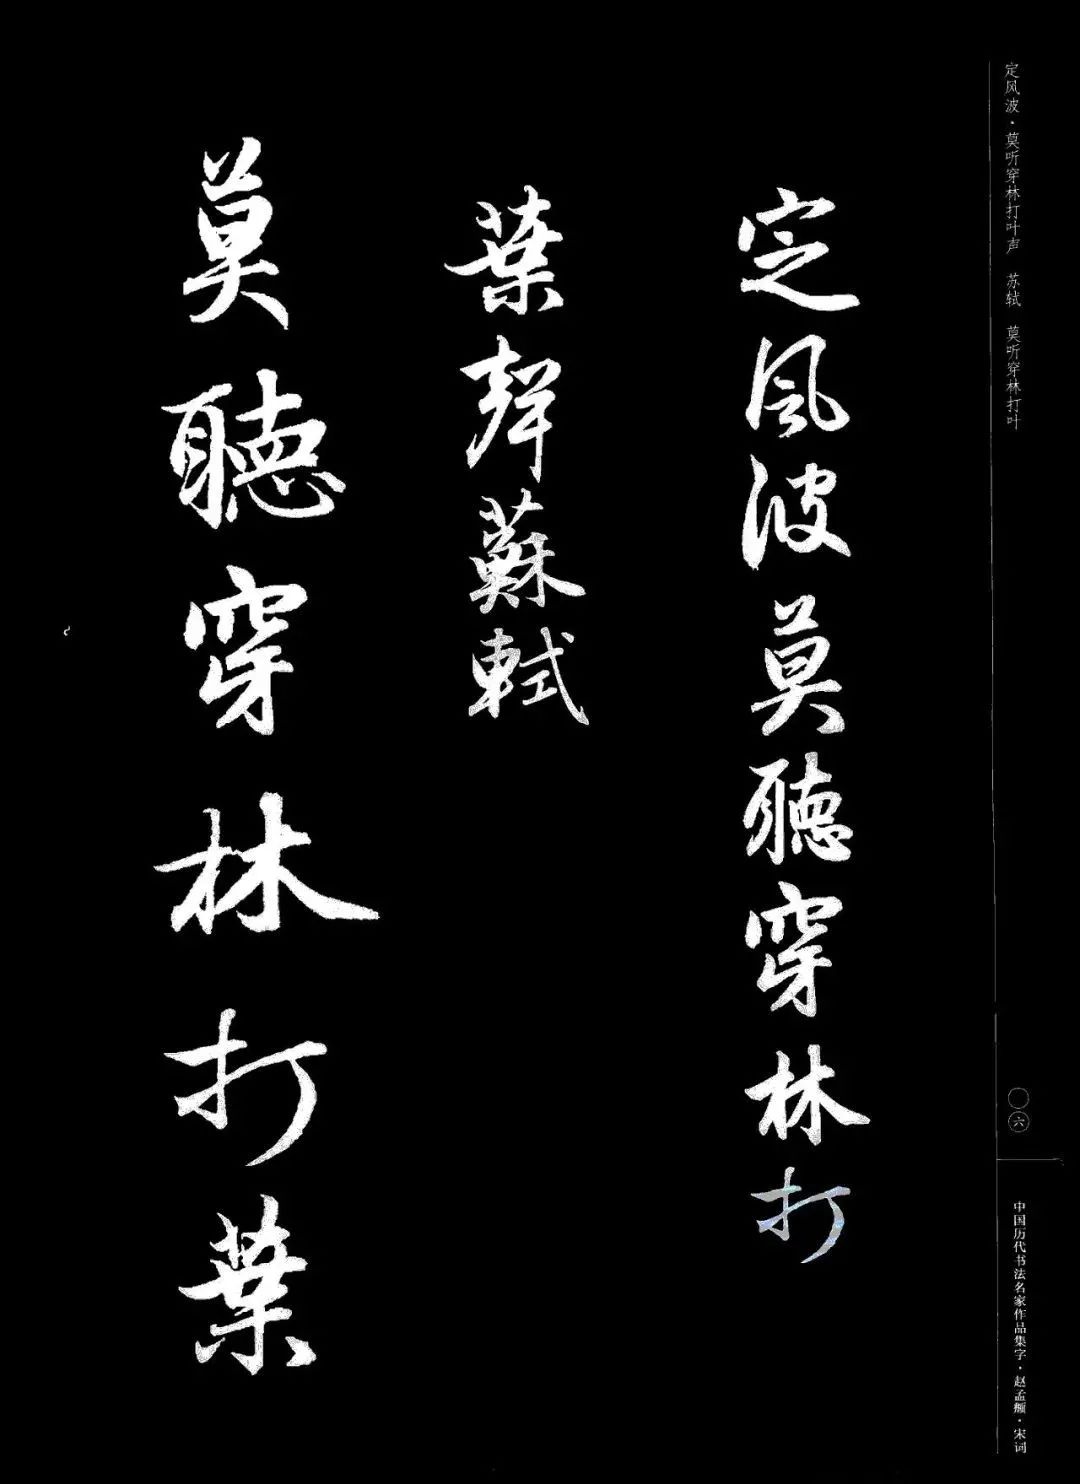 定风波·莫听穿林打叶声 苏轼 莫听穿林打叶
定風波莫聽穿林打
葉聲蘇軾
莫聽穿林打葉
〇六
中国历代书法名家作品集字·赵孟頫·宋词